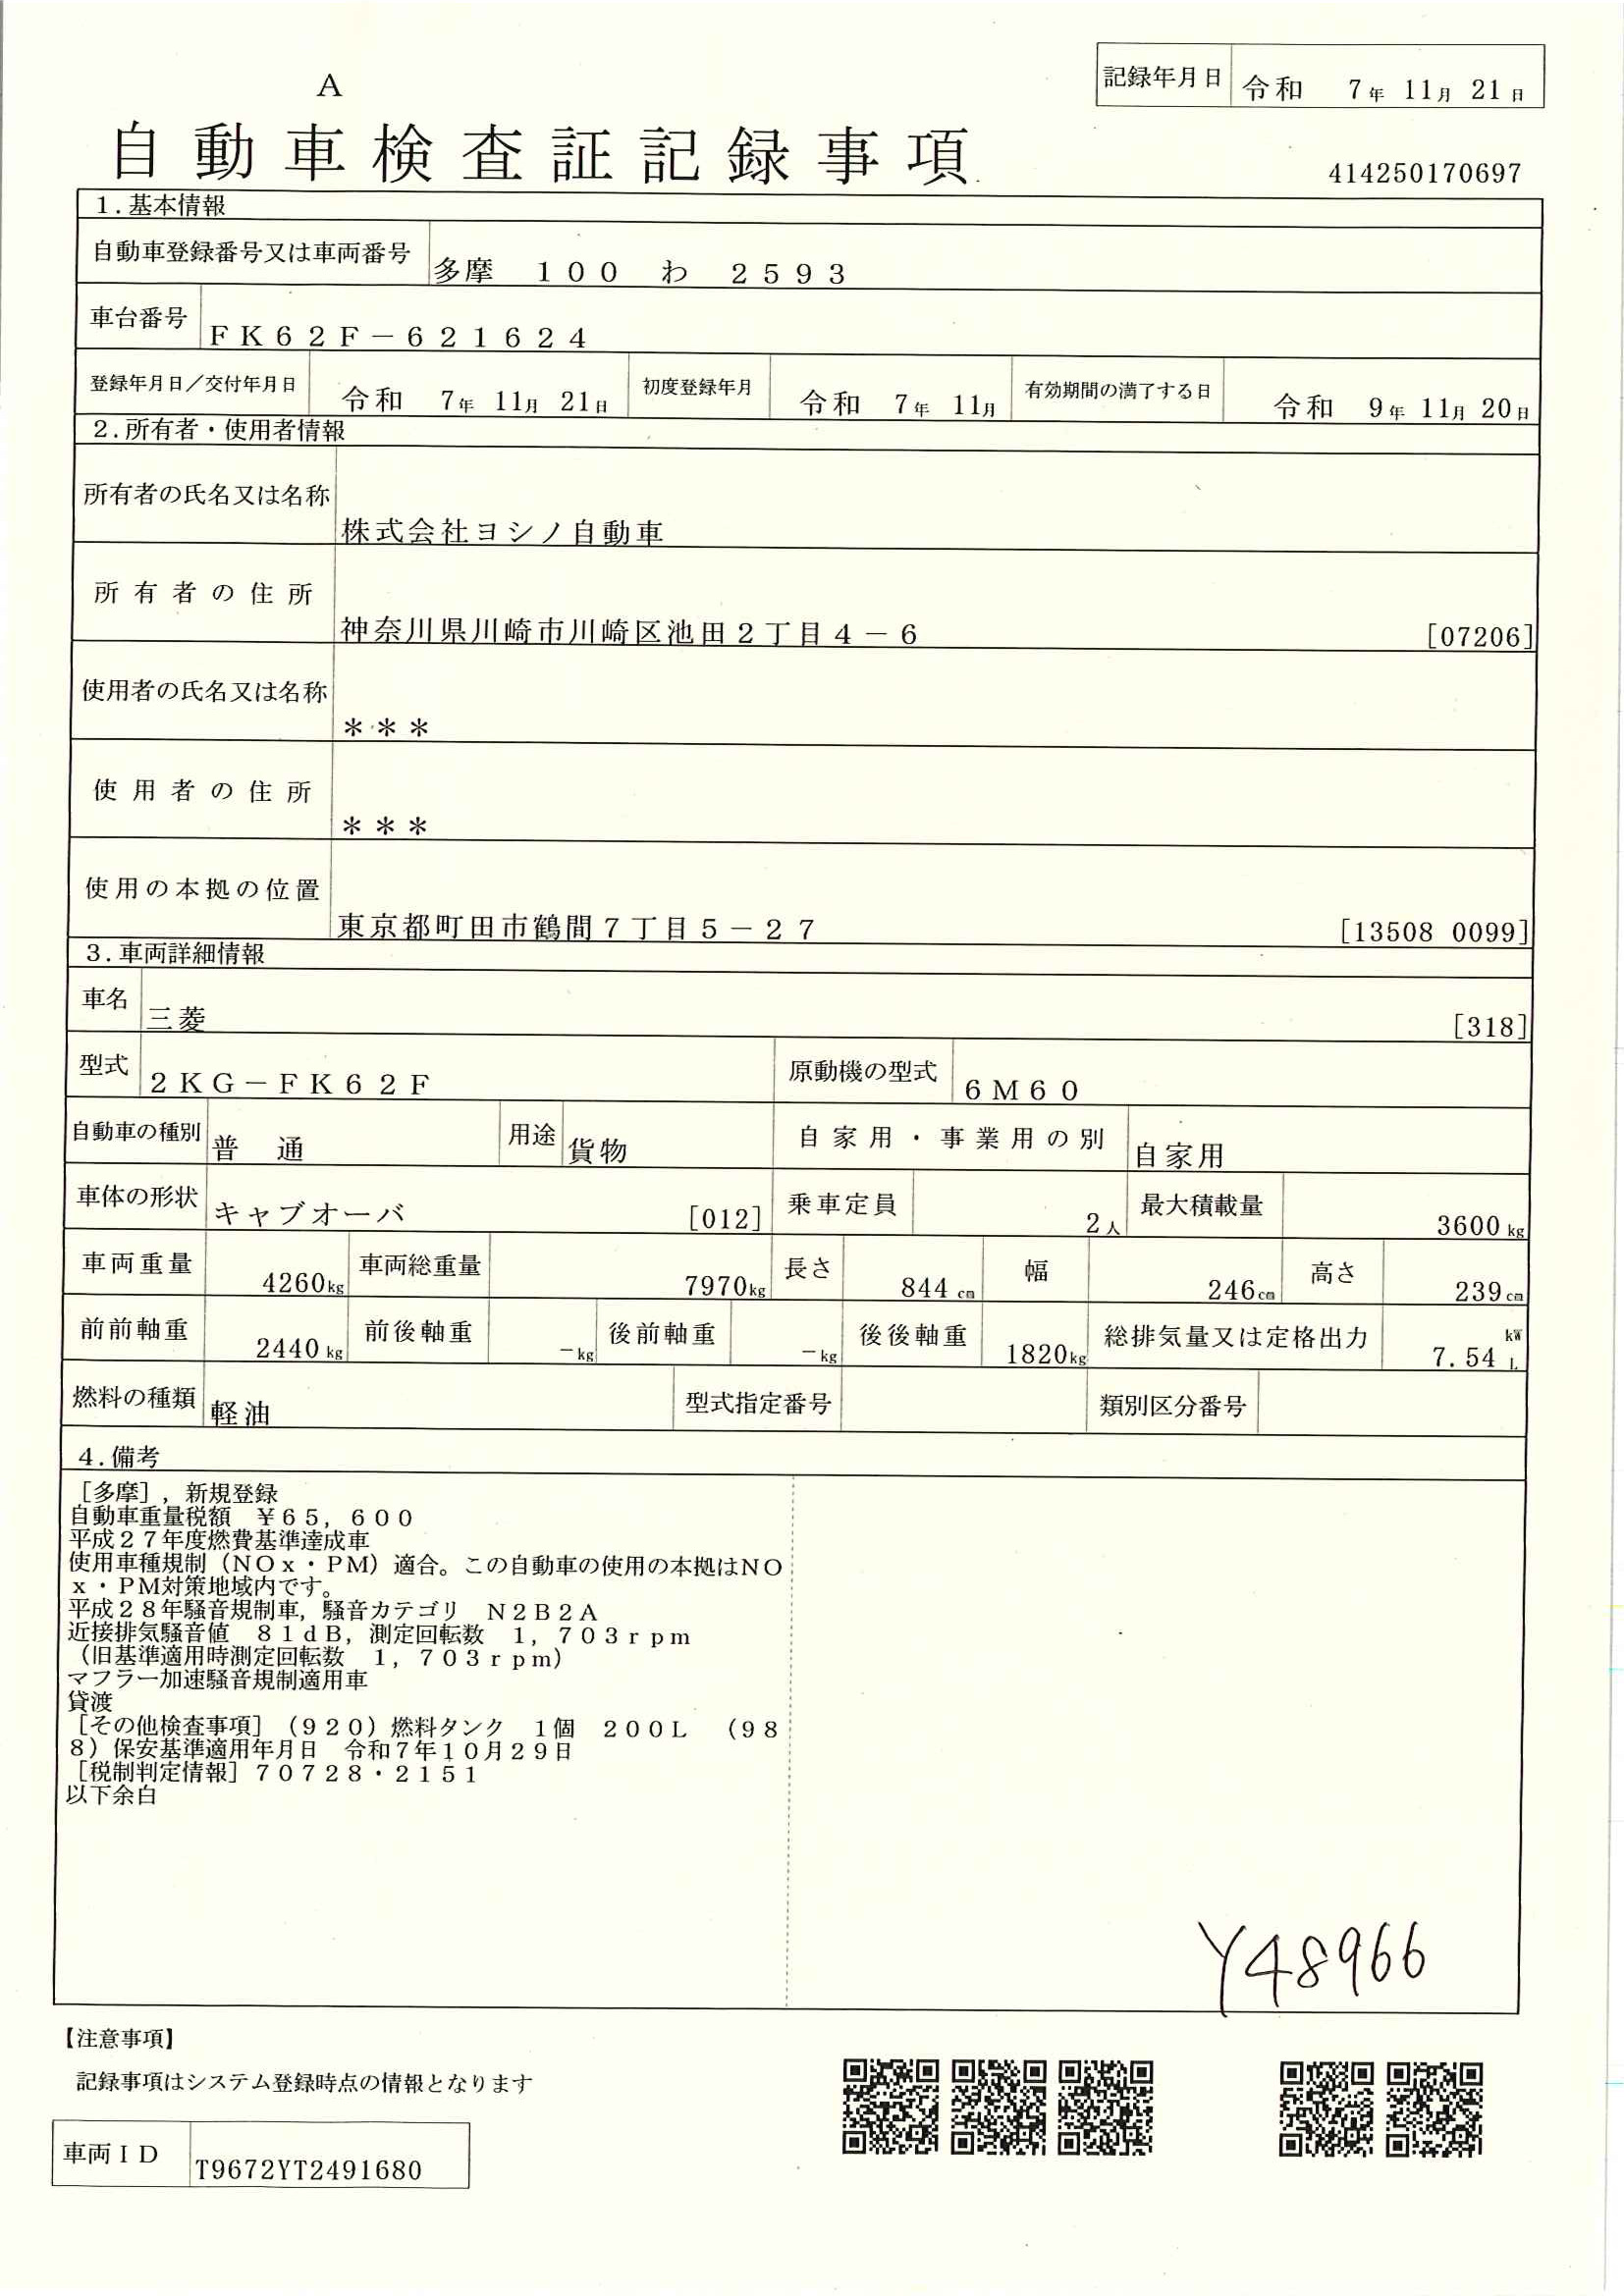 A
記録年月日 令和 7年 11月 21日
自動車検査証記録事項
414250170697
1.基本情報
自動車登録番号又は車両番号 多摩 100 わ 2593
車台番号 FK62F-621624
登録年月日/交付年月日 令和 7年 11月 21日 初度登録年月 令和 7年 11月 有効期間の満了する日 令和 9年 11月 20日
2.所有者・使用者情報
所有者の氏名又は名称 株式会社ヨシノ自動車
所有者の住所 神奈川県川崎市川崎区池田2丁目4-6 [07206]
使用者の氏名又は名称 ***
使用者の住所 ***
使用の本拠の位置 東京都町田市鶴間7丁目5-27 [13508 0099]
3.車両詳細情報
車名 三菱 [318]
型式 2KG-FK62F 原動機の型式 6M60
自動車の種別 普通 用途 貨物 自家用・事業用の別 自家用
車体の形状 キャブオーバ [012] 乗車定員 2人 最大積載量 3600kg
車両重量 4260kg 車両総重量 7970kg 長さ 844cm 幅 246cm 高さ 239cm
前前軸重 2440kg 前後軸重 -kg 後前軸重 -kg 後後軸重 1820kg 総排気量又は定格出力 7.54 kW L
燃料の種類 軽油 型式指定番号 類別区分番号
4.備考
[多摩],新規登録
自動車重量税額 ¥65,600
平成27年度燃費基準達成車
使用車種規制(NOx・PM)適合。この自動車の使用の本拠はNO
x・PM対策地域内です。
平成28年騒音規制車,騒音カテゴリ N2B2A
近接排気騒音値 81dB,測定回転数 1,703rpm
(旧基準適用時測定回転数 1,703rpm)
マフラー加速騒音規制適用車
貸渡
[その他検査事項](920)燃料タンク 1個 200L (98
8)保安基準適用年月日 令和7年10月29日
[税制判定情報]70728・2151
以下余白
Y48966
【注意事項】
記録事項はシステム登録時点の情報となります
車両ID T9672YT2491680